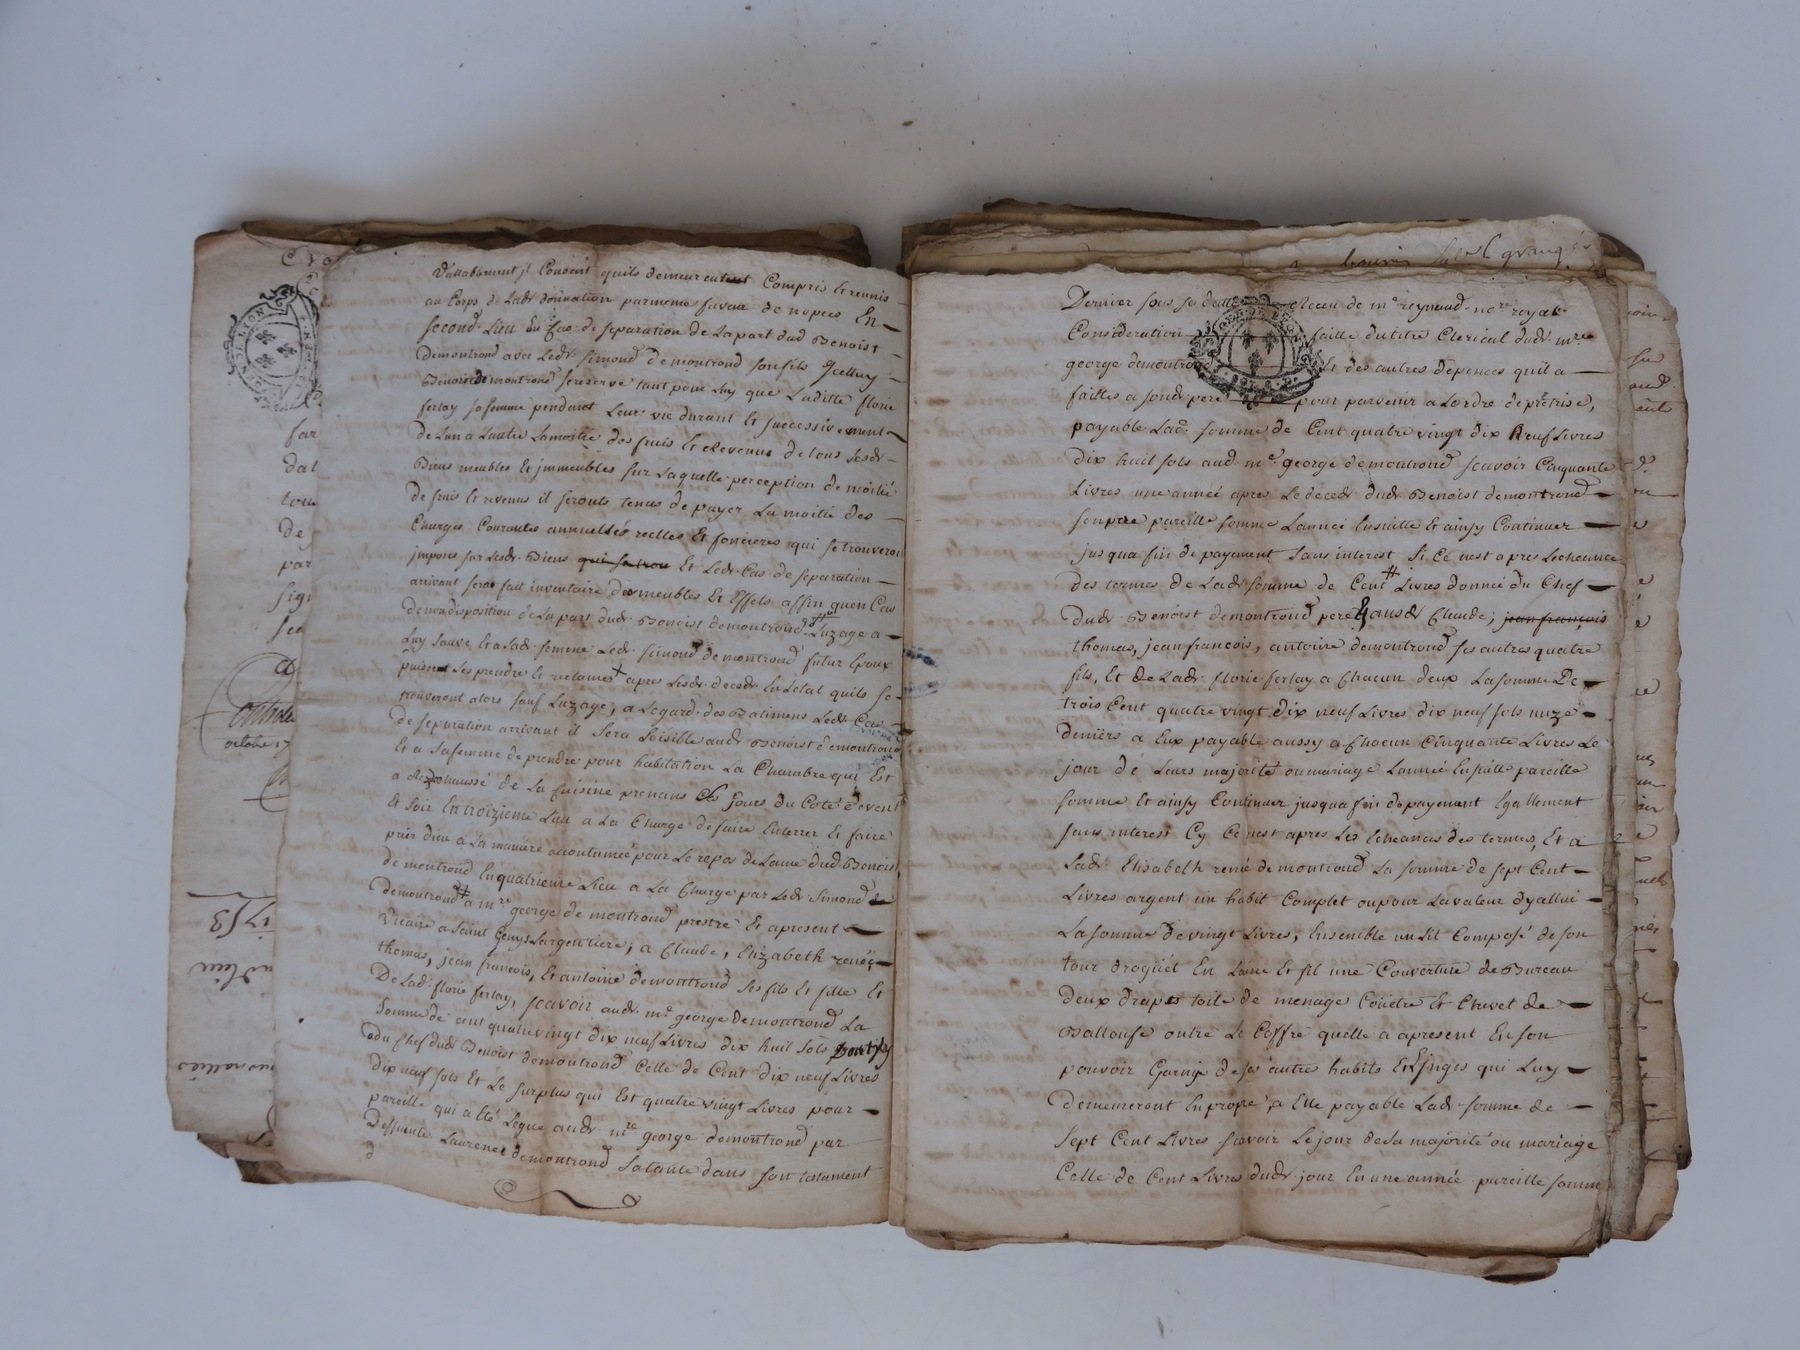 d'attablement jl Convient quils demeureutent Compris & reunis
au Corps de Ladt donnation par meme faveur de nopces En
second Lieu En Cas de separation de La part dud Benoist
Demontrond avec Ledt simond Demontrond son fils Jcelluy
Benoist demontrond se reserve tant pour Luy que Laditte florie
ferlay sa femme pendant Leur vie durant Et successivement
De Lun a Lautre La moitie des fruis Et Revenus de tous sesdt
Biens meubles Et jmmeubles sur Laquelle perception de moitié
De fruis Et revenus il seronts tenus de payer La moitie des
Charges Courantes annuelles reelles Et foncieres qui se trouveron
imposes sur Lesdt Biens qui se trou Et Ledt Cas de separation
arrivant sera fait inventaire des meubles Et Effets affin quen Cas
De non disposition de La part dudt Benoist demontrond Luzage a
Luy sauve Et a sadt femme Ledt simond de montrond futur Epoux
puisse Les prendre Et reclamer apres Lesdt decedt En Letat quils se
trouveront alors sauf Luzage, a Legard des Batimens Ledt Cas
De separation arrivant il sera Loisible audt Benoist demontrond
Et a sa femme de prendre pour habitation La Chambre qui Est
a Rezdchaussé de La Cuisine prenans ses jours du Coté de vent
Et soir En troizieme Lieu a La Charge de faire Enterrer Et faire
prier dieu a La maniere accoutumée pour Le repos de Lame dud Benoist
de montrond En quatrieme Lieu a La Charge par Ledt simond
demontrond a mre george de montrond prestre Et apresent
Vicaire a Saint Genys Largentiere, a Claude, Elizabeth renée,
thomas, jean francois, Et antoine demontrond ses fils Et fille Et
De Ladt florie ferlay, scavoir audt mre george demontrond La
somme de cent quatre vingt dix neuf Livres dix huit sols
du Chef dudt Benoist demontrond Celle de Cent dix neuf Livres
dix neuf sols Et Le surplus qui Est quatre vingt Livres pour
pareille qui a Eté Legué audt mre george demontrond par
Deffunte Laurence demontrond sa tante dans son testament
Dernier sous sa datte Receu de me reynaud nore royal
Consideration faitte du titre Clerical dudt mre
george demontrond Et des autres depences quil a
faittes a sondt pere pour parvenir a Lordre de prêtrise,
payable Lade somme de Cent quatre vingt dix Neuf Livres
Dix huit sols aud mre george demontrond scavoir Cinquante
Livres une année apres Le decedt dudt Benoist demontrond
son pere pareille somme Lannée Ensuitte Et ainsy Continuer
jusqua fin de payement sans interest si Ce nest apres Lecheance
Des termes de Ladt somme de Cent Livres donnée du Chef
Dudt Benoist demontrond pere & ausdt Claude, jean françois
thomas, jean francois, antoine demontrond ses autres quatre
fils, Et de Ladt florie ferlay a Chacun deux La somme De
trois Cent quatre vingt dix neuf Livres dix neuf sols unze
Deniers a Eux payable aussy a Chacun Cinquante Livres Le
jour de Leurs majorité ou mariage Lannée Ensuitte pareille
somme Et ainsy Continuer jusqua fin de payement Egallement
sans interest Cy Ce nest apres Les Echeances des termes, Et a
Ladt Elisabeth rené de montrond La somme de sept Cent
Livres argent un habit Complet ou pour La valeur dyalluy
La somme De vingt Livres, Ensemble un Lit Composé de son
tour droguet En Laine Et fil une Couverture de Bureau
deux draps toile de menage Couétre Et Chevet de
Ballouse outre Le Coffre quelle a apresent En son
pouvoir Garny de ses autres habits Et Linges qui Luy
Demeureront En propre, a Elle payable Ladt somme de
Sept Cent Livres scavoir Le jour de sa majorité ou mariage
Celle de Cent Livres dudt jour En une année pareille somme